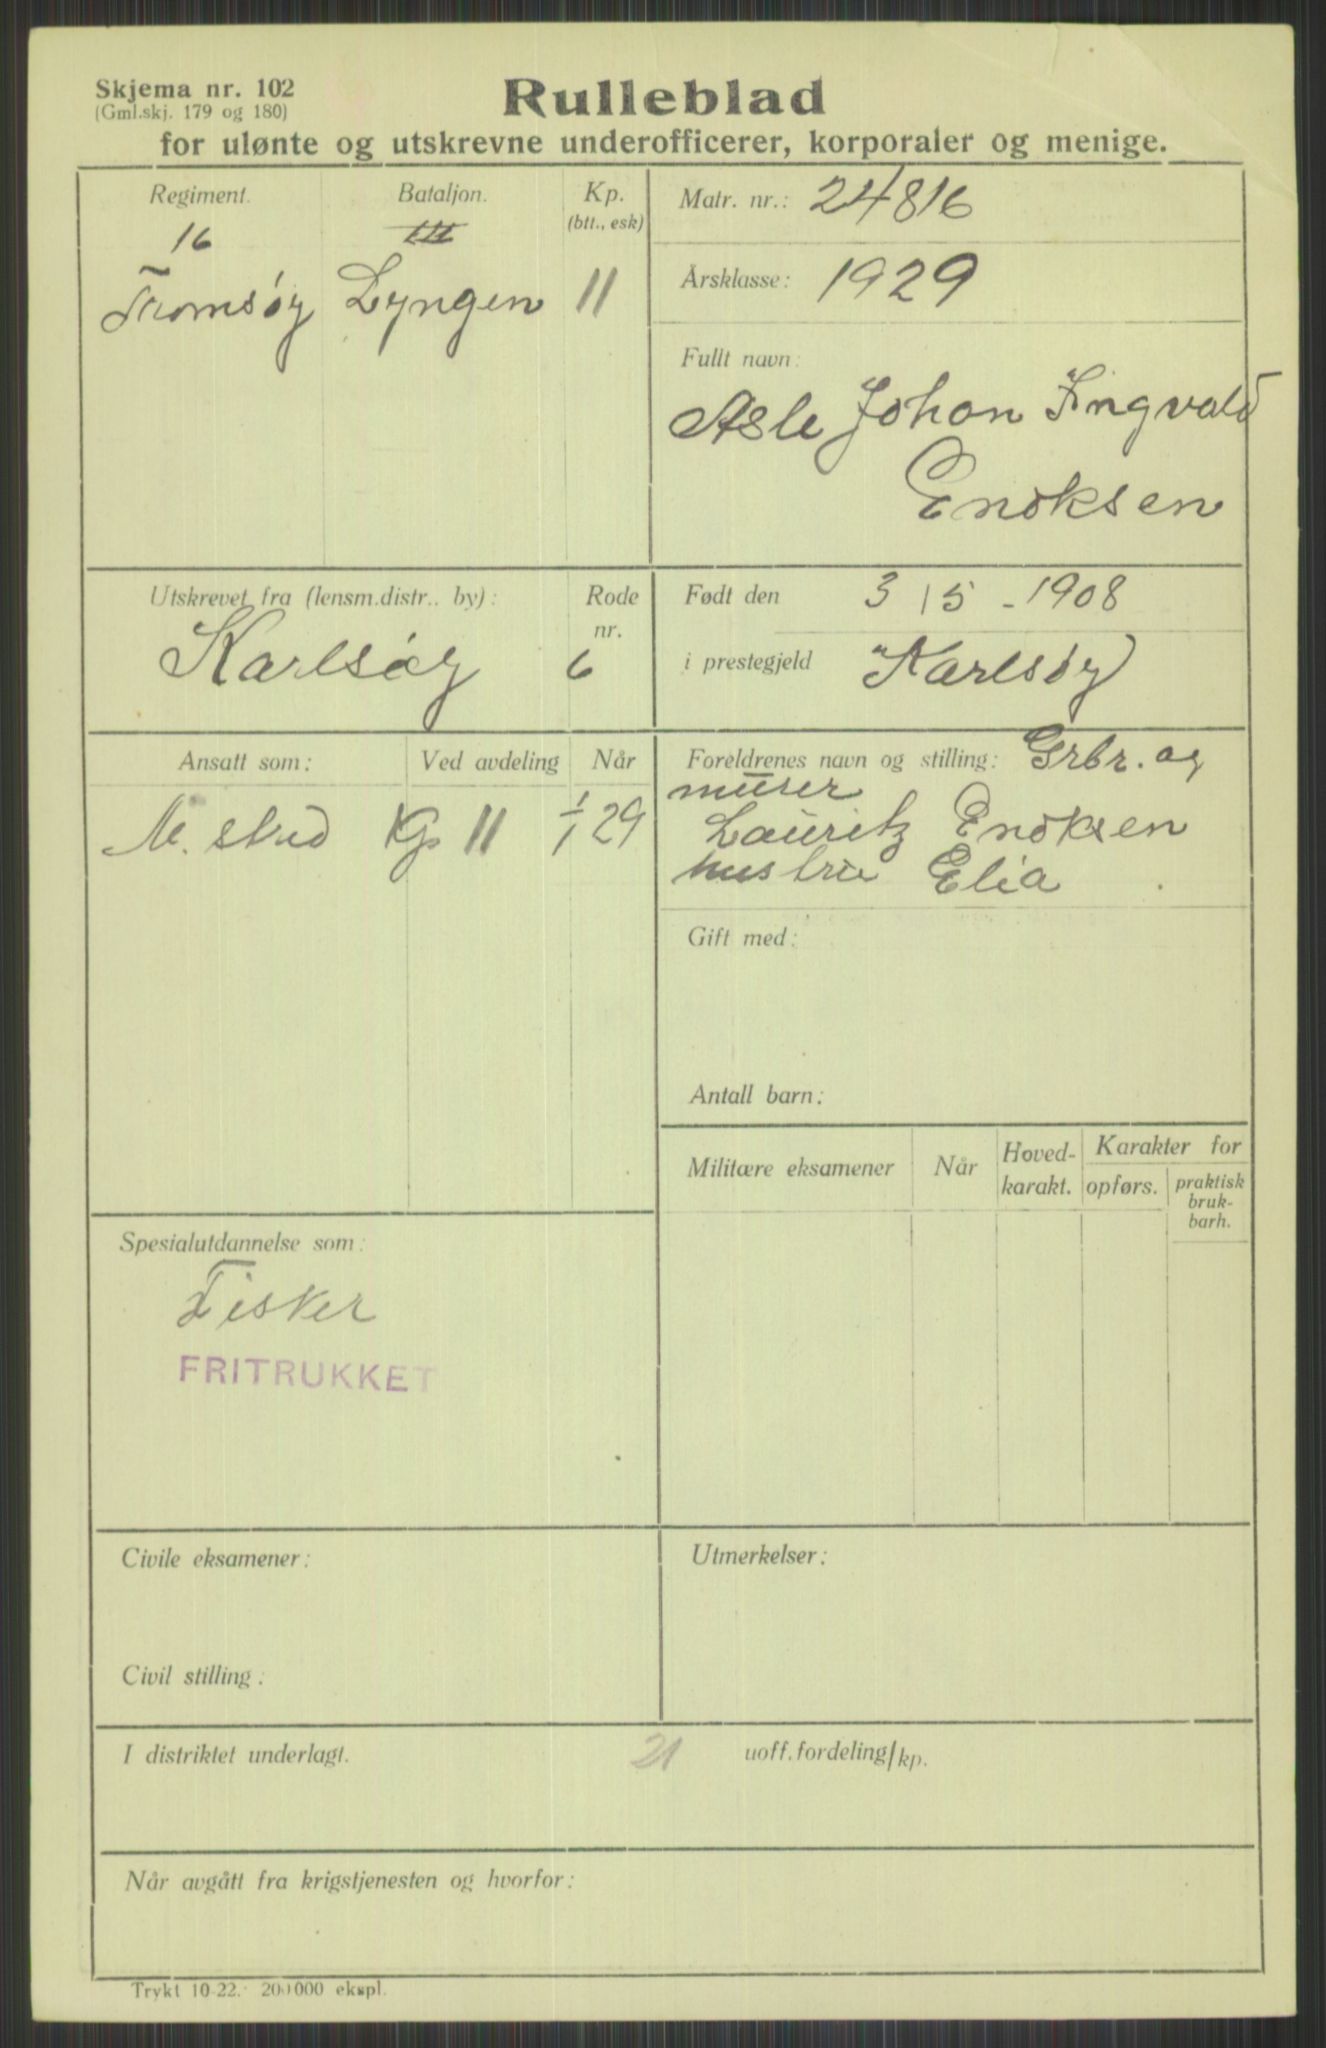 Skjema nr. 102
(Gml.skj. 179 og 180)
Rulleblad
for ulønte og utskrevne underofficerer, korporaler og menige.
Regiment.
16
Tromsøy
Bataljon.
III
Lyngen
Kp.
(btt., esk)
11
Matr. nr.: 24816
Årsklasse: 1929
Fullt navn:
Asle Johan Ingvald
Enoksen
Utskrevet fra (lensm.distr.. by):
Karlsøy
Rode
nr.
6
Født den 3/5 - 1908
i prestegjeld Karlsøy
Ansatt som:
M. stud
Ved avdeling
Kp 11
Når
1/1 29
Foreldrenes navn og stilling: Grbr. og
murer
Lauritz Enoksen
hustru Elia
Gift med:
Antall barn:
Militære eksamener
Når
Hoved-
karakt.
Karakter for
opførs.
praktisk
bruk-
barh.
Spesialutdannelse som:
Fisker
FRITRUKKET
Civile eksamener:
Civil stilling:
Utmerkelser:
I distriktet underlagt. 21 uoff.fordeling/kp.
Når avgått fra krigstjenesten og hvorfor:
Trykt 10-22. 200000 ekspl.